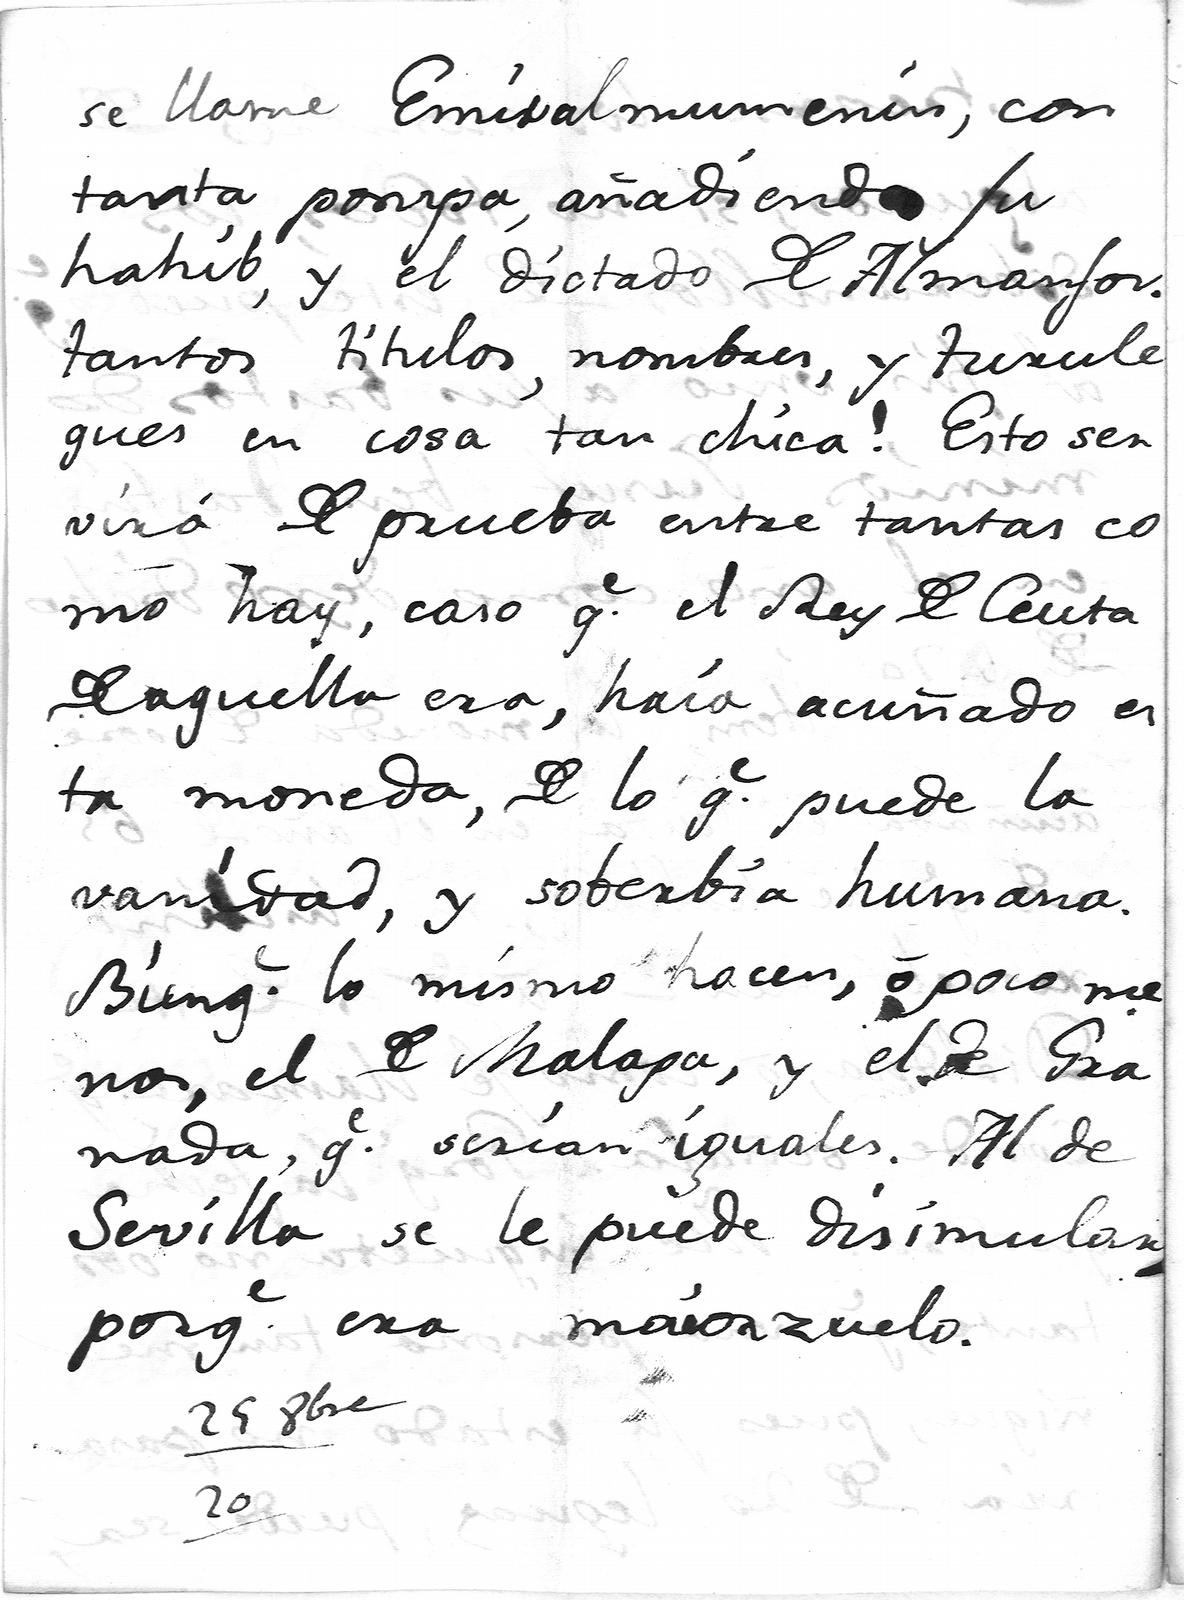 se llame Emiralmumenin, con
tanta pompa, añadiendo su
hahib, y el dictado de Almansor.
tantos titulos, nombres, y turule
gues en cosa tan chica! Esto ser
virá de prueba entre tantas co
mo hay, caso q.e el Rey de Ceuta
de aquella era, haia acuñado es
ta moneda, de lo q.e puede la
vanidad, y soberbia humana.
Bienq.e lo mismo hacen, ó poco me
nos, el de Malaga, y el de Gra
nada, q.e serian iguales. Al de
Sevilla se le puede disimular,
porq.e era maiorzuelo.
29 8bre
20